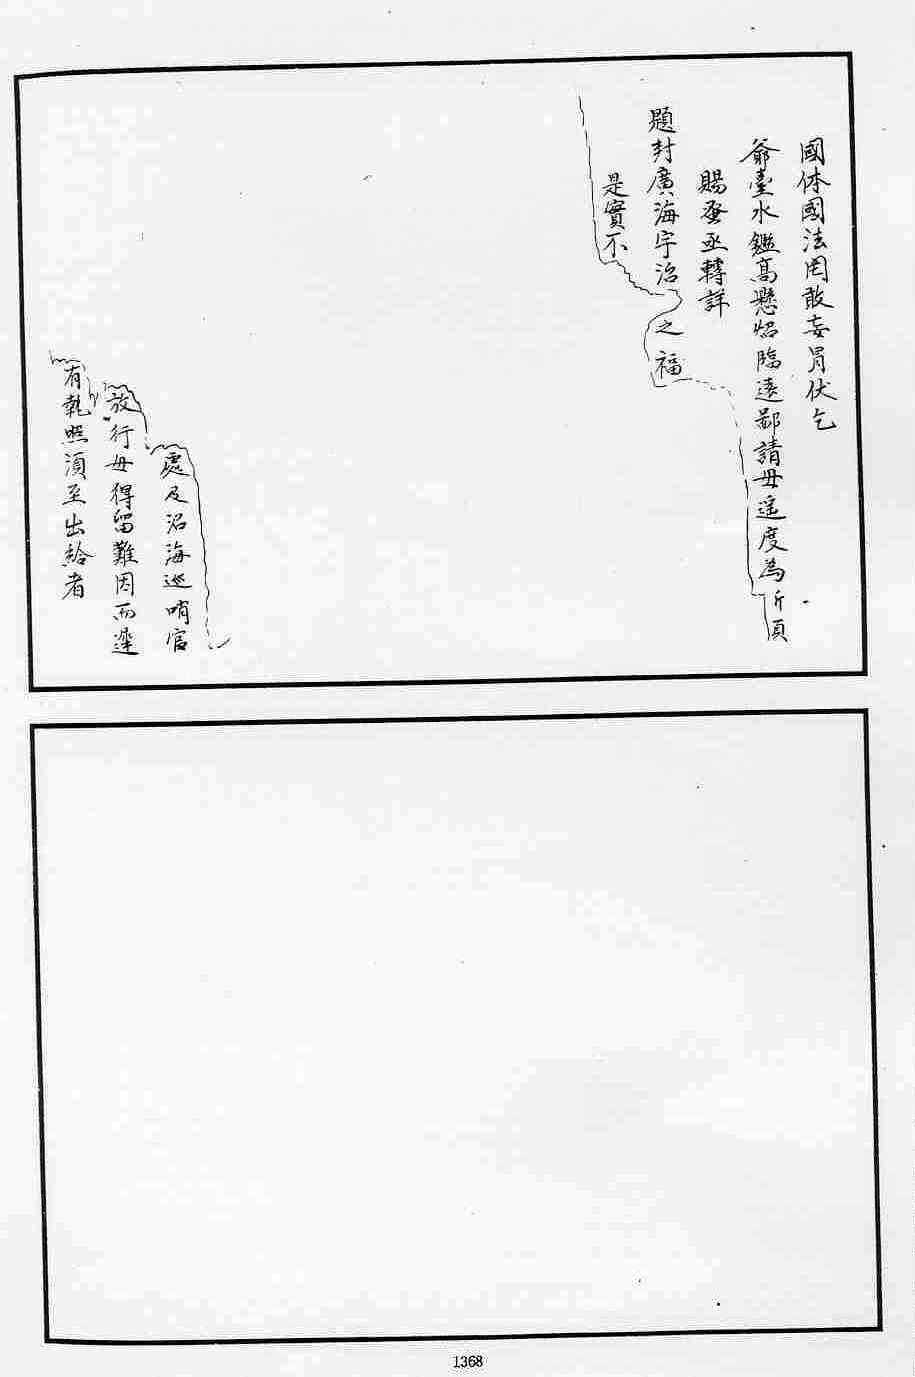 國体國法罔敢妄冒伏乞
爺臺水鑑高懸炤臨遠鄙請毋遥度為斤頁
賜蚤亟轉詳
題封廣海宇治之福
是實不
處及沿海巡哨官
放行毋得留難因而遲
有執照須至出給者
1368